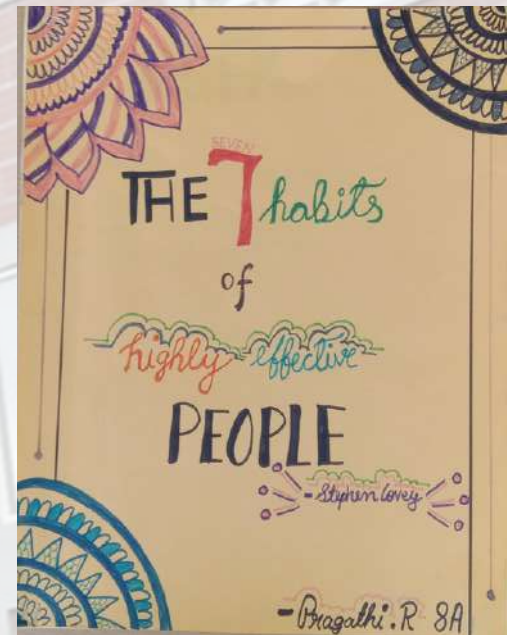 SEVEN
THE 7 habits
of
highly effective
PEOPLE
- Stephen Covey
- Pragathi.R 8A